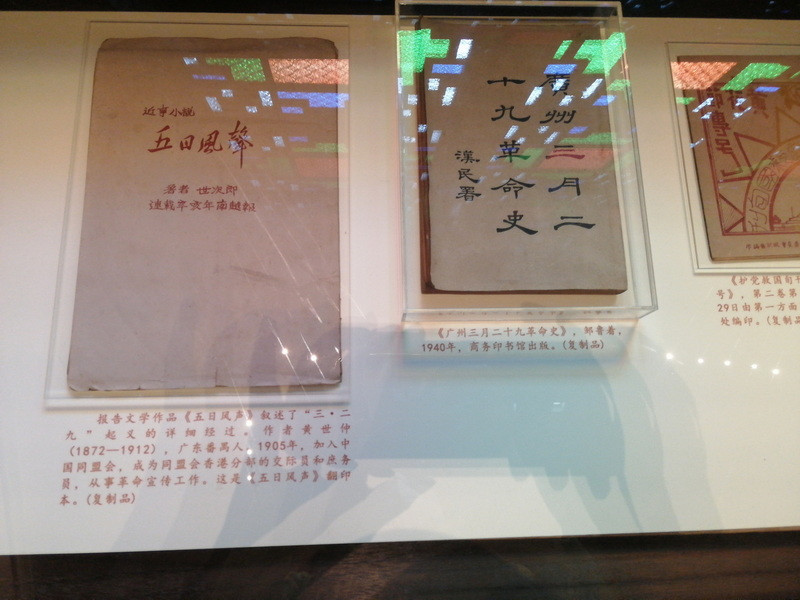 近事小說
五日風聲
著者 世次郎
連載辛亥年南越報
报告文学作品《五日风声》叙述了“三·二
九”起义的详细经过。作者黄世仲
(1872—1912)，广东番禺人，1905年，加入中
国同盟会，成为同盟会香港分部的交际员和庶务
员，从事革命宣传工作。这是《五日风声》翻印
本。(复制品)
廣州三月二
十九革命史
漢民署
《广州三月二十九革命史》，邹鲁着，
1940年，商务印书馆出版。(复制品)
專号
《护党救国旬刊
号》，第二卷第
29日由第一方面
处编印。(复制品